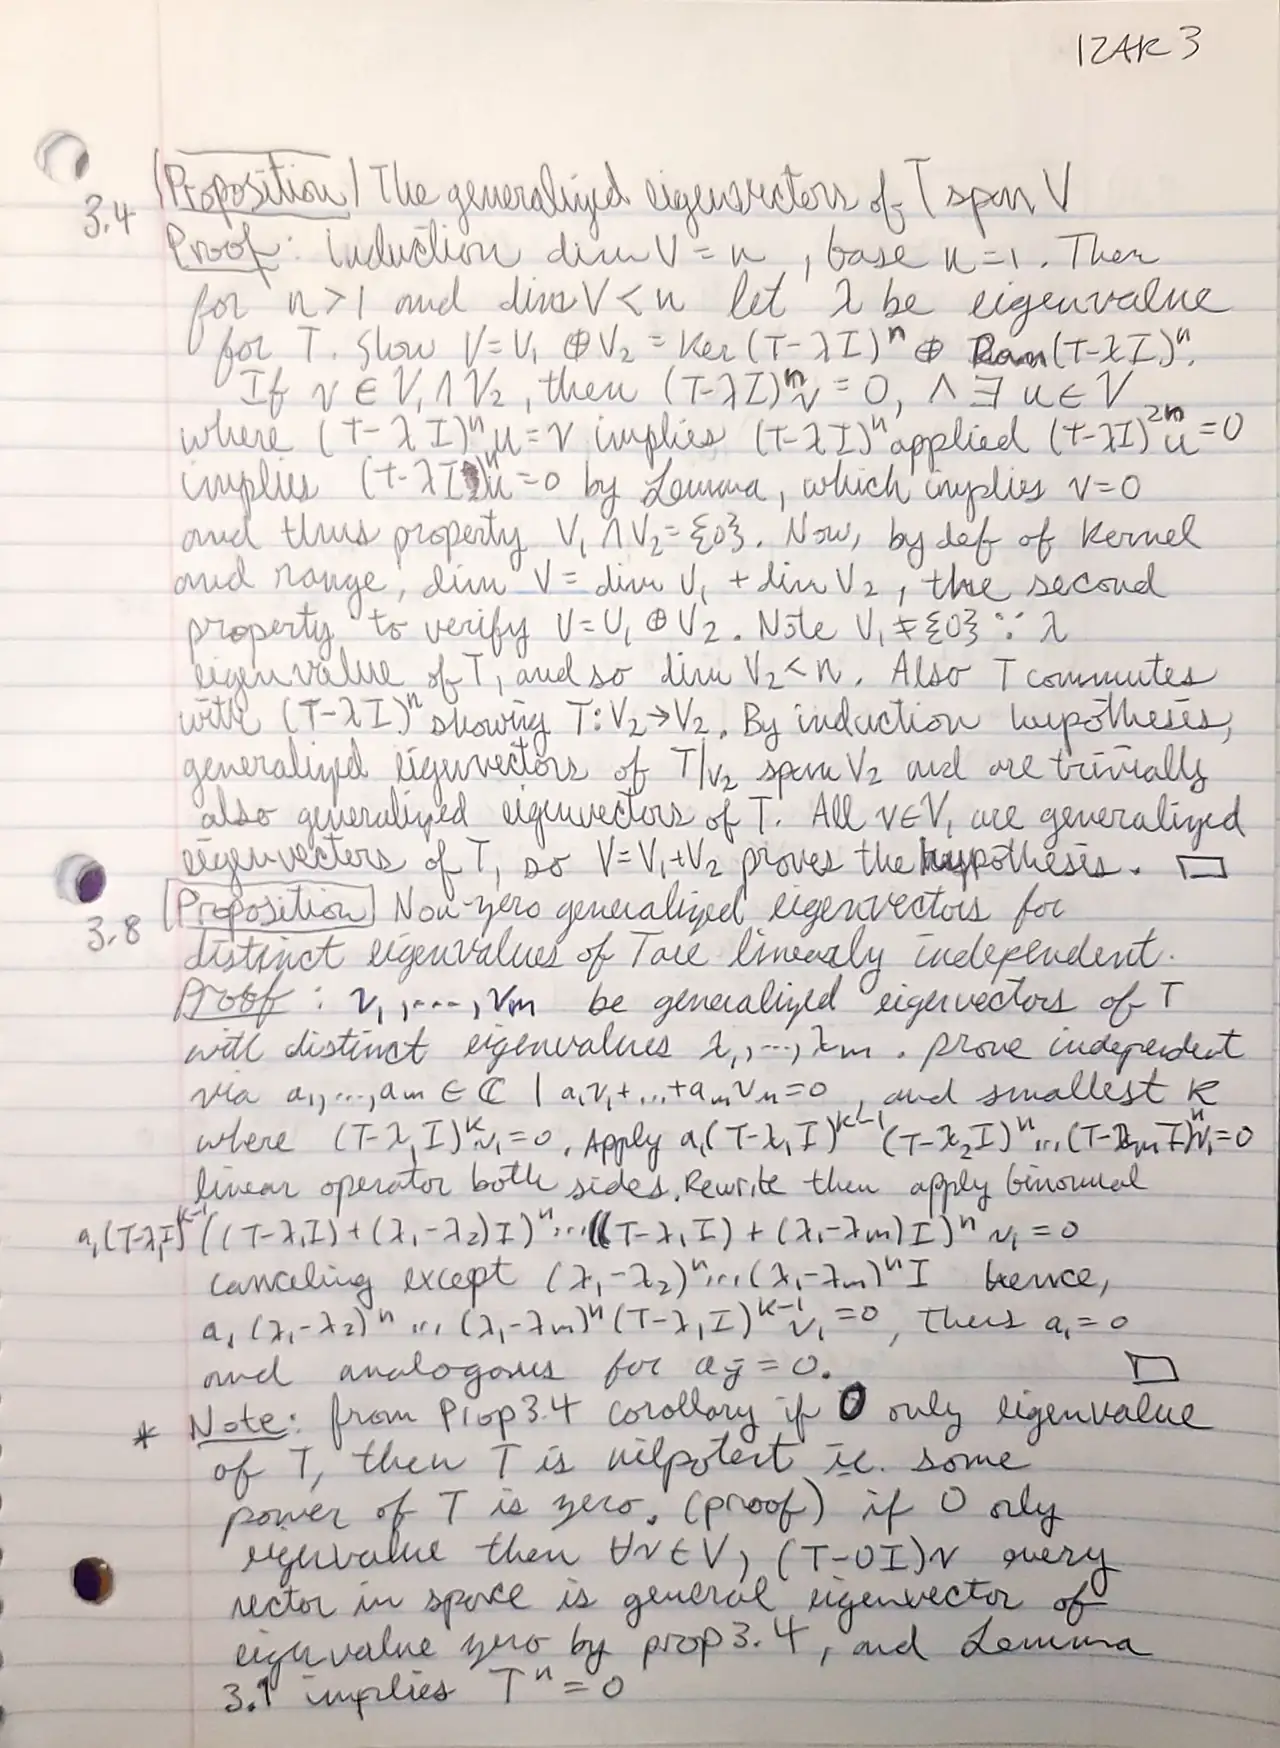 IZAK 3
3.4 Proposition The generalized eigenvectors of T span V
Proof: induction dim V = n, base n=1. Then
for n>1 and dim V < n let λ be eigenvalue
for T. Show V=V₁⊕V₂ = Ker(T-λI)ⁿ ⊕ Ran(T-λI)ⁿ.
If v ∈ V₁∩V₂, then (T-λI)ⁿv = 0, ∧ ∃ u∈V
where (T-λI)ⁿu=v implies (T-λI)ⁿ applied (T-λI)²ⁿu=0
implies (T-λI)ⁿu=0 by Lemma, which implies v=0
and thus property V₁∩V₂={0}. Now, by def of kernel
and range, dim V = dim V₁ + dim V₂, the second
property to verify V=V₁⊕V₂. Note V₁≠{0} ∵ λ
eigenvalue of T, and so dim V₂<n. Also T commutes
with (T-λI)ⁿ showing T:V₂→V₂. By induction hypothesis,
generalized eigenvectors of T|v₂ span V₂ and are trivially
also generalized eigenvectors of T. All v∈V₁ are generalized
eigenvectors of T, so V=V₁+V₂ proves the hypothesis. □
3.8 Proposition Non-zero generalized eigenvectors for
distinct eigenvalues of T are linearly independent.
Proof: v₁,...,vₘ be generalized eigenvectors of T
with distinct eigenvalues λ₁,...,λₘ. prove independent
via a₁,...,aₘ ∈ ℂ | a₁v₁+...+aₘvₘ=0, and smallest k
where (T-λ₁I)ᵏv₁=0. Apply a₁(T-λ₁I)ᵏ⁻¹(T-λ₂I)ⁿ...(T-λₘI)ⁿv₁=0
linear operator both sides. Rewrite then apply binomial
a₁(T-λ₁I)ᵏ⁻¹((T-λ₁I)+(λ₁-λ₂)I)ⁿ...((T-λ₁I)+(λ₁-λₘ)I)ⁿ v₁=0
canceling except (λ₁-λ₂)ⁿ...(λ₁-λₘ)ⁿI hence,
a₁(λ₁-λ₂)ⁿ...(λ₁-λₘ)ⁿ(T-λ₁I)ᵏ⁻¹v₁=0, thus a₁=0
and analogous for aⱼ=0. □
* Note: from Prop 3.4 corollary if 0 only eigenvalue
of T, then T is nilpotent ie. some
power of T is zero. (proof) if 0 only
eigenvalue then ∀v∈V, (T-0I)v every
vector in space is general eigenvector of
eigenvalue zero by prop 3.4, and Lemma
3.1 implies Tⁿ=0